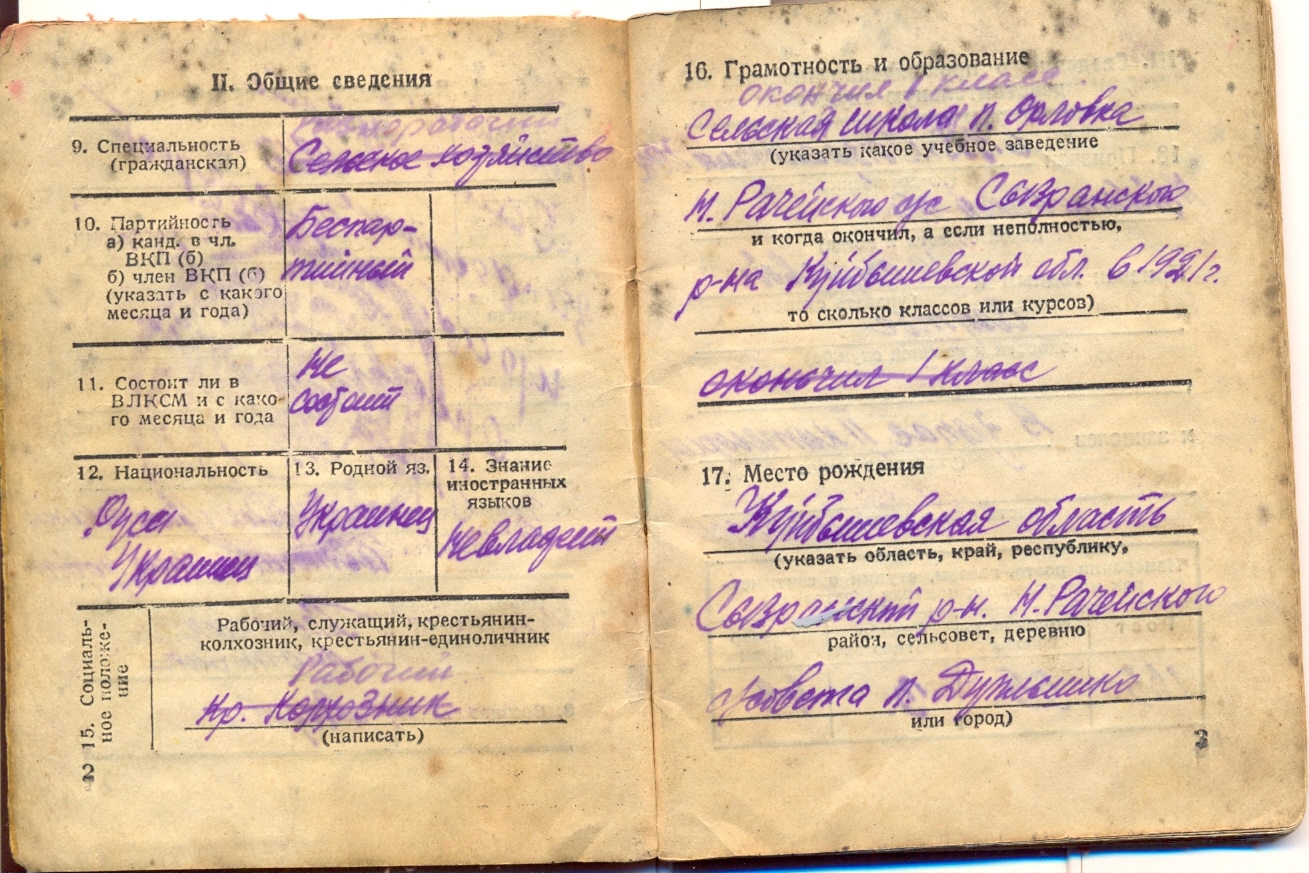 II. Общие сведения
9. Специальность
(гражданская)
Разнорабочий
Сельское хозяйство
10. Партийность
а) канд. в чл.
ВКП (б)
б) член ВКП (б)
(указать с какого
месяца и года)
Беспар-
тийный
11. Состоит ли в
ВЛКСМ и с како-
го месяца и года
Не
состоит
12. Национальность
Украинец
13. Родной яз.
Украинец
14. Знание
иностранных
языков
Невладеет
15. Социаль-
ное положе-
ние
Рабочий, служащий, крестьянин-
колхозник, крестьянин-единоличник
Рабочий
Кр. Колхозник
(написать)
2
16. Грамотность и образование
окончил класс.
Сельская школа п. Орловка
(указать какое учебное заведение
Н. Рачейского с/с Сызранского
и когда окончил, а если неполностью,
р-на Куйбышевской обл. в 1921 г.
то сколько классов или курсов)
окончил 1 класс
17. Место рождения
Куйбышевская область
(указать область, край, республику,
Сызранский р-н. Н. Рачейского
район, сельсовет, деревню
с/совета п.
или город)
3